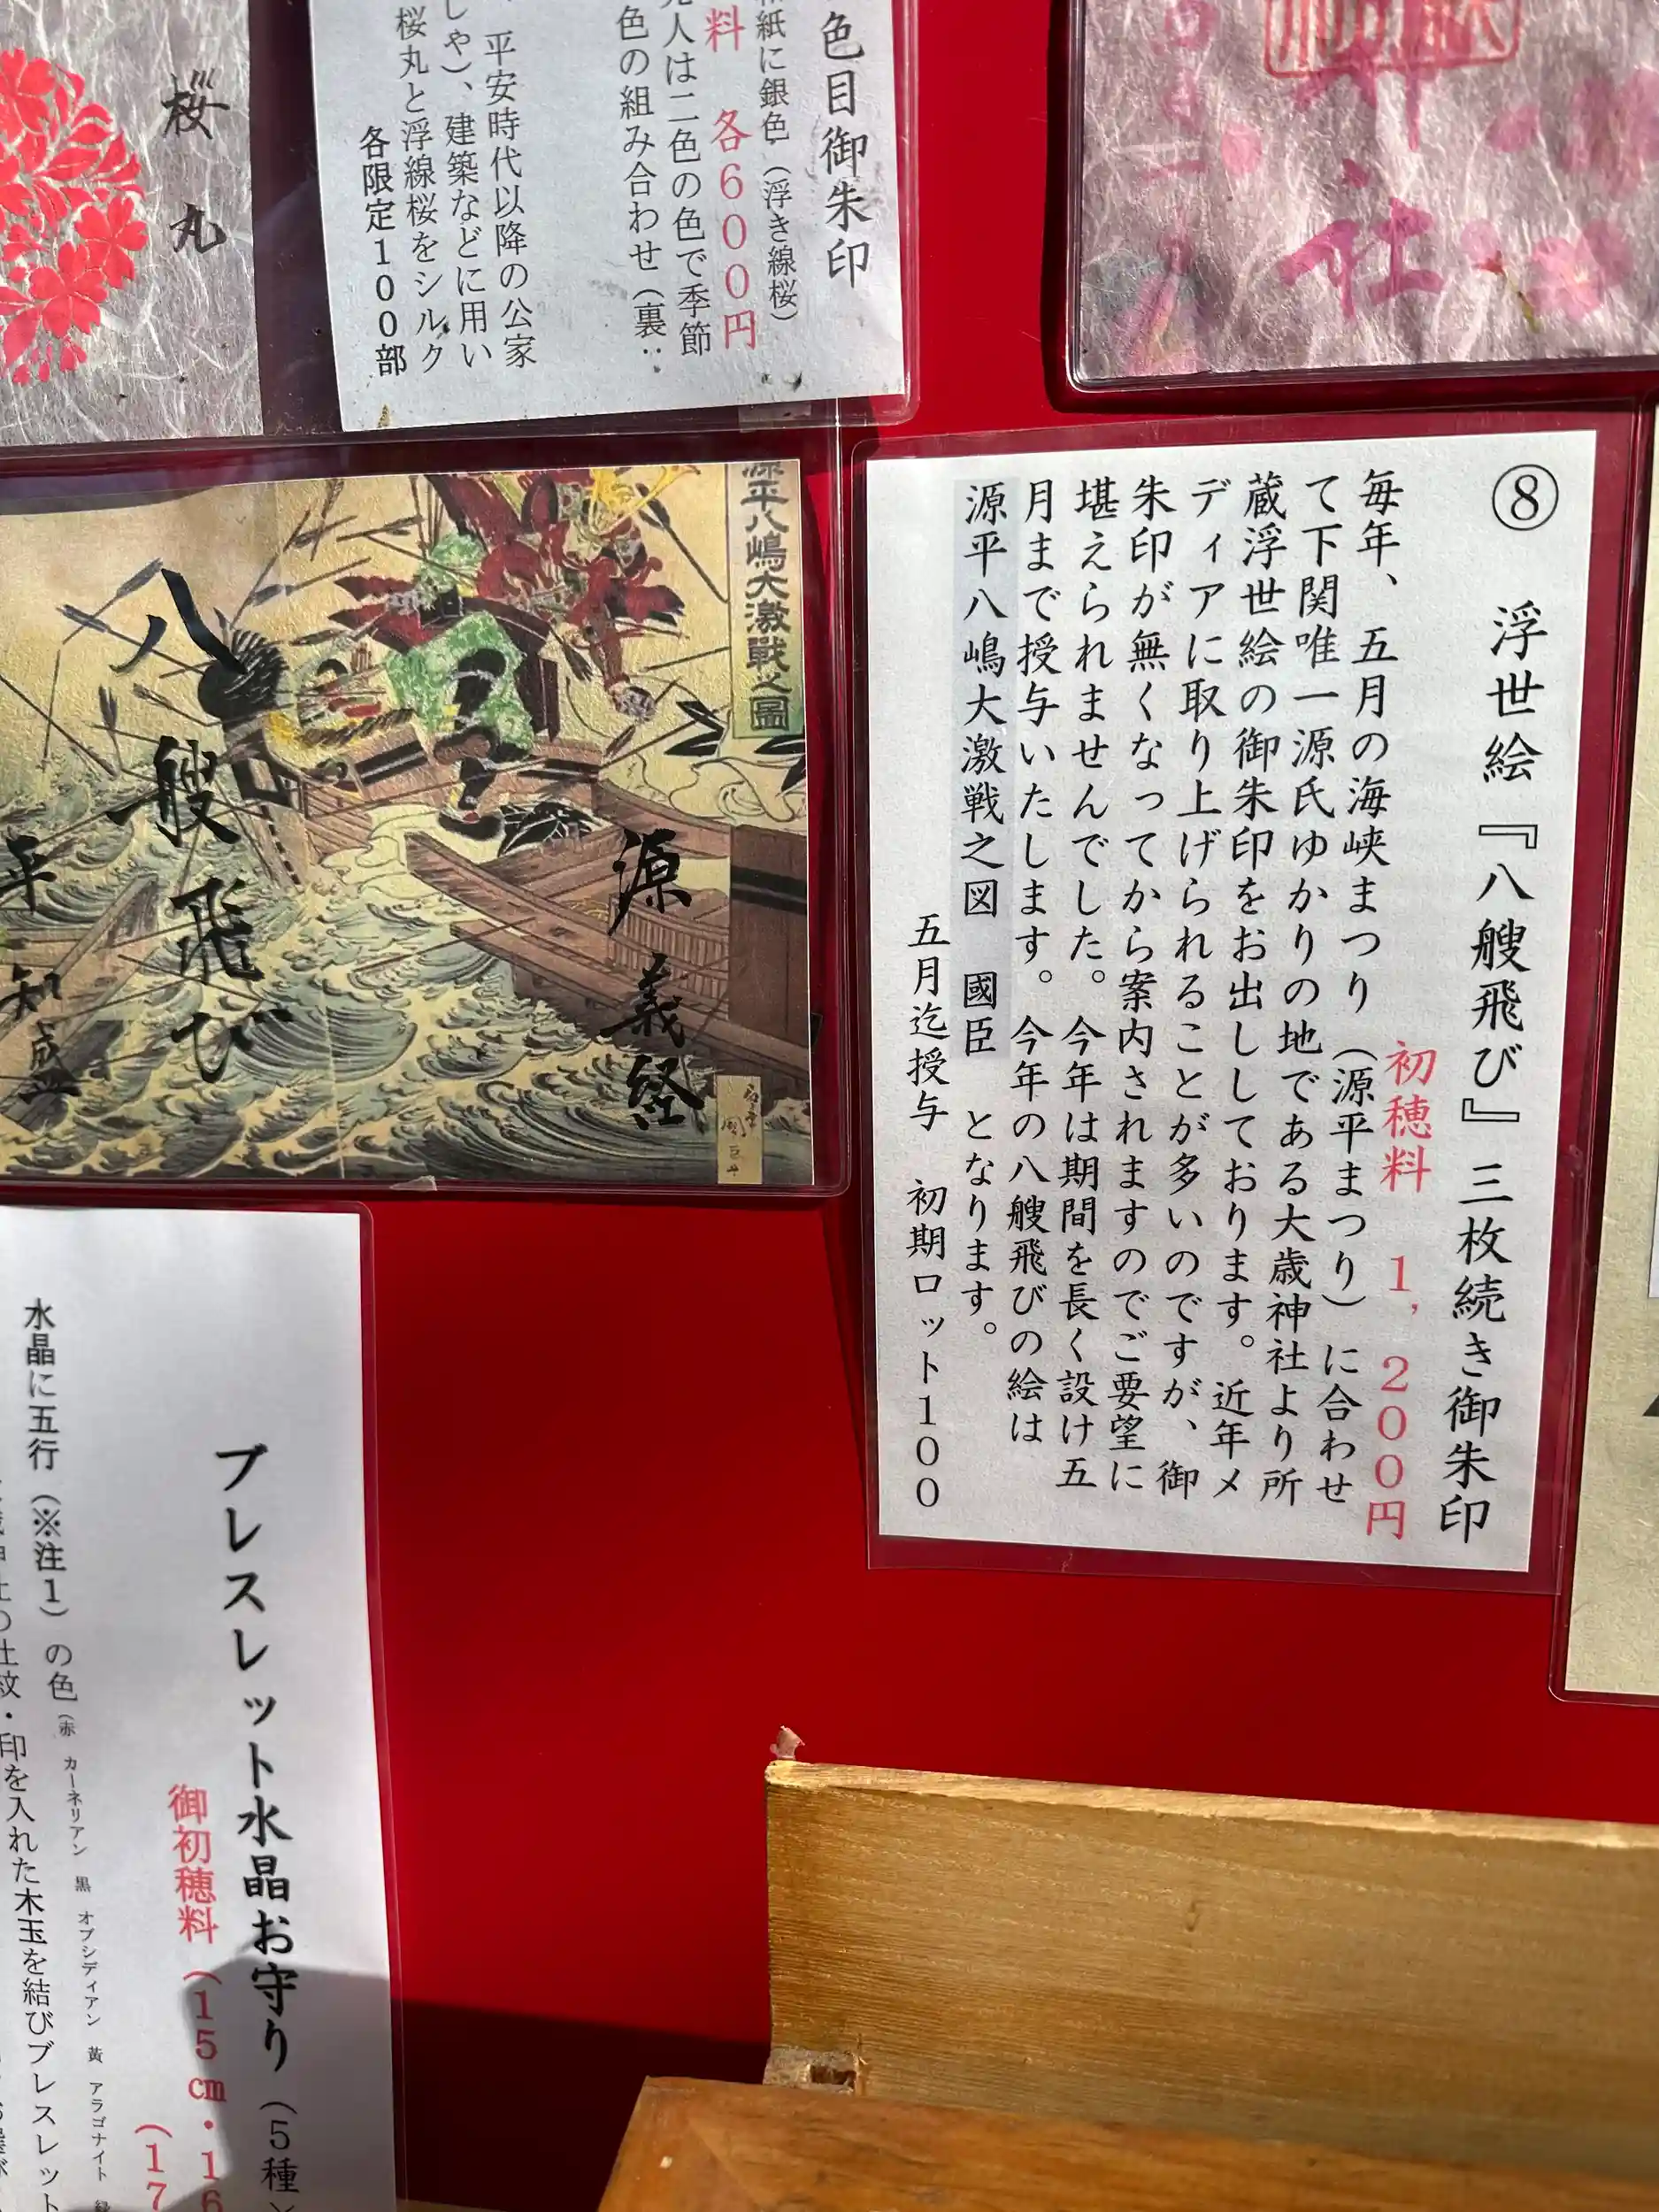 桜丸
色目御朱印
紙に銀色（浮き線桜）
料　各600円
人は二色の色で季節
色の組み合わせ（裏：
平安時代以降の公家
しや）、建築などに用い
桜丸と浮線桜をシルク
各限定100部
社
⑧　浮世絵『八艘飛び』三枚続き御朱印
初穂料　1,200円
毎年、五月の海峡まつり（源平まつり）に合わせ
て下関唯一源氏ゆかりの地である大歳神社より所
蔵浮世絵の御朱印をお出ししております。近年メ
ディアに取り上げられることが多いのですが、御
朱印が無くなってから案内されますのでご要望に
堪えられませんでした。今年は期間を長く設け五
月まで授与いたします。今年の八艘飛びの絵は
源平八嶋大激戦之図　國臣　となります。
五月迄授与　初期ロット100
源平八嶋大激戰之圖
源義経
八艘飛び
平知盛
ブレスレット水晶お守り（5種
御初穂料（15㎝・16
（17
水晶に五行（※注1）の色（赤　カーネリアン　黒　オブシディアン　黄　アラゴナイト　緑
紋・印を入れた木玉を結びブレスレット